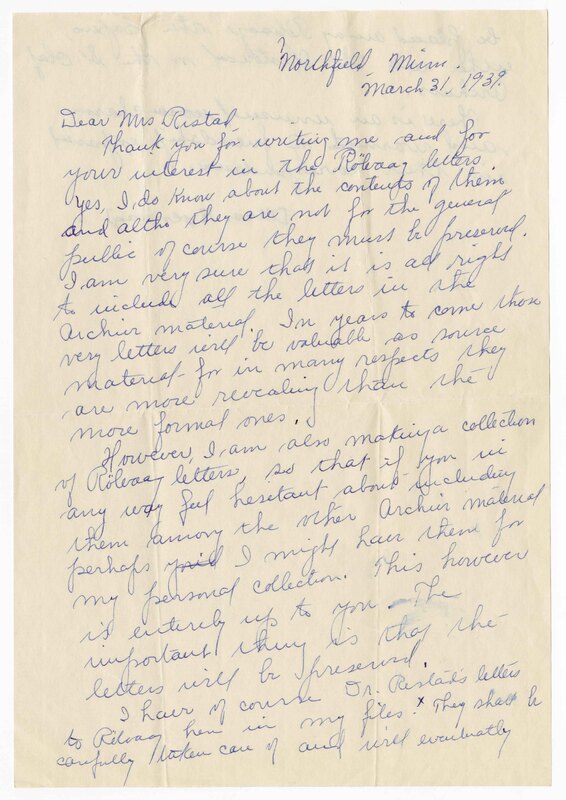 Northfield Minn.
March 31, 1939.
Dear Mrs Ristad
Thank you for writing me and for
your interest in the Rölvaag letters.
Yes, I do know about the contents of them
and altho they are not for the general
public of course they must be preserved.
I am very sure that it is all right
to include all the letters in the
Archiv material. In years to come those
very letters will be valuable as source
material – for in many respects they
are more revealing than the
more formal ones.
However, I am also making a collection
of Rölvaag letters, so that if you in
any way feel hesitant about including
them among the other Archiv material
perhaps I might have them for
my personal collection. This however
is entirely up to you. – The
important thing is that the
letters will be preserved.
I have of course Dr. Ristad's letters
to Rölvaag here in my files. x They shall be
carefully taken care of and will eventually